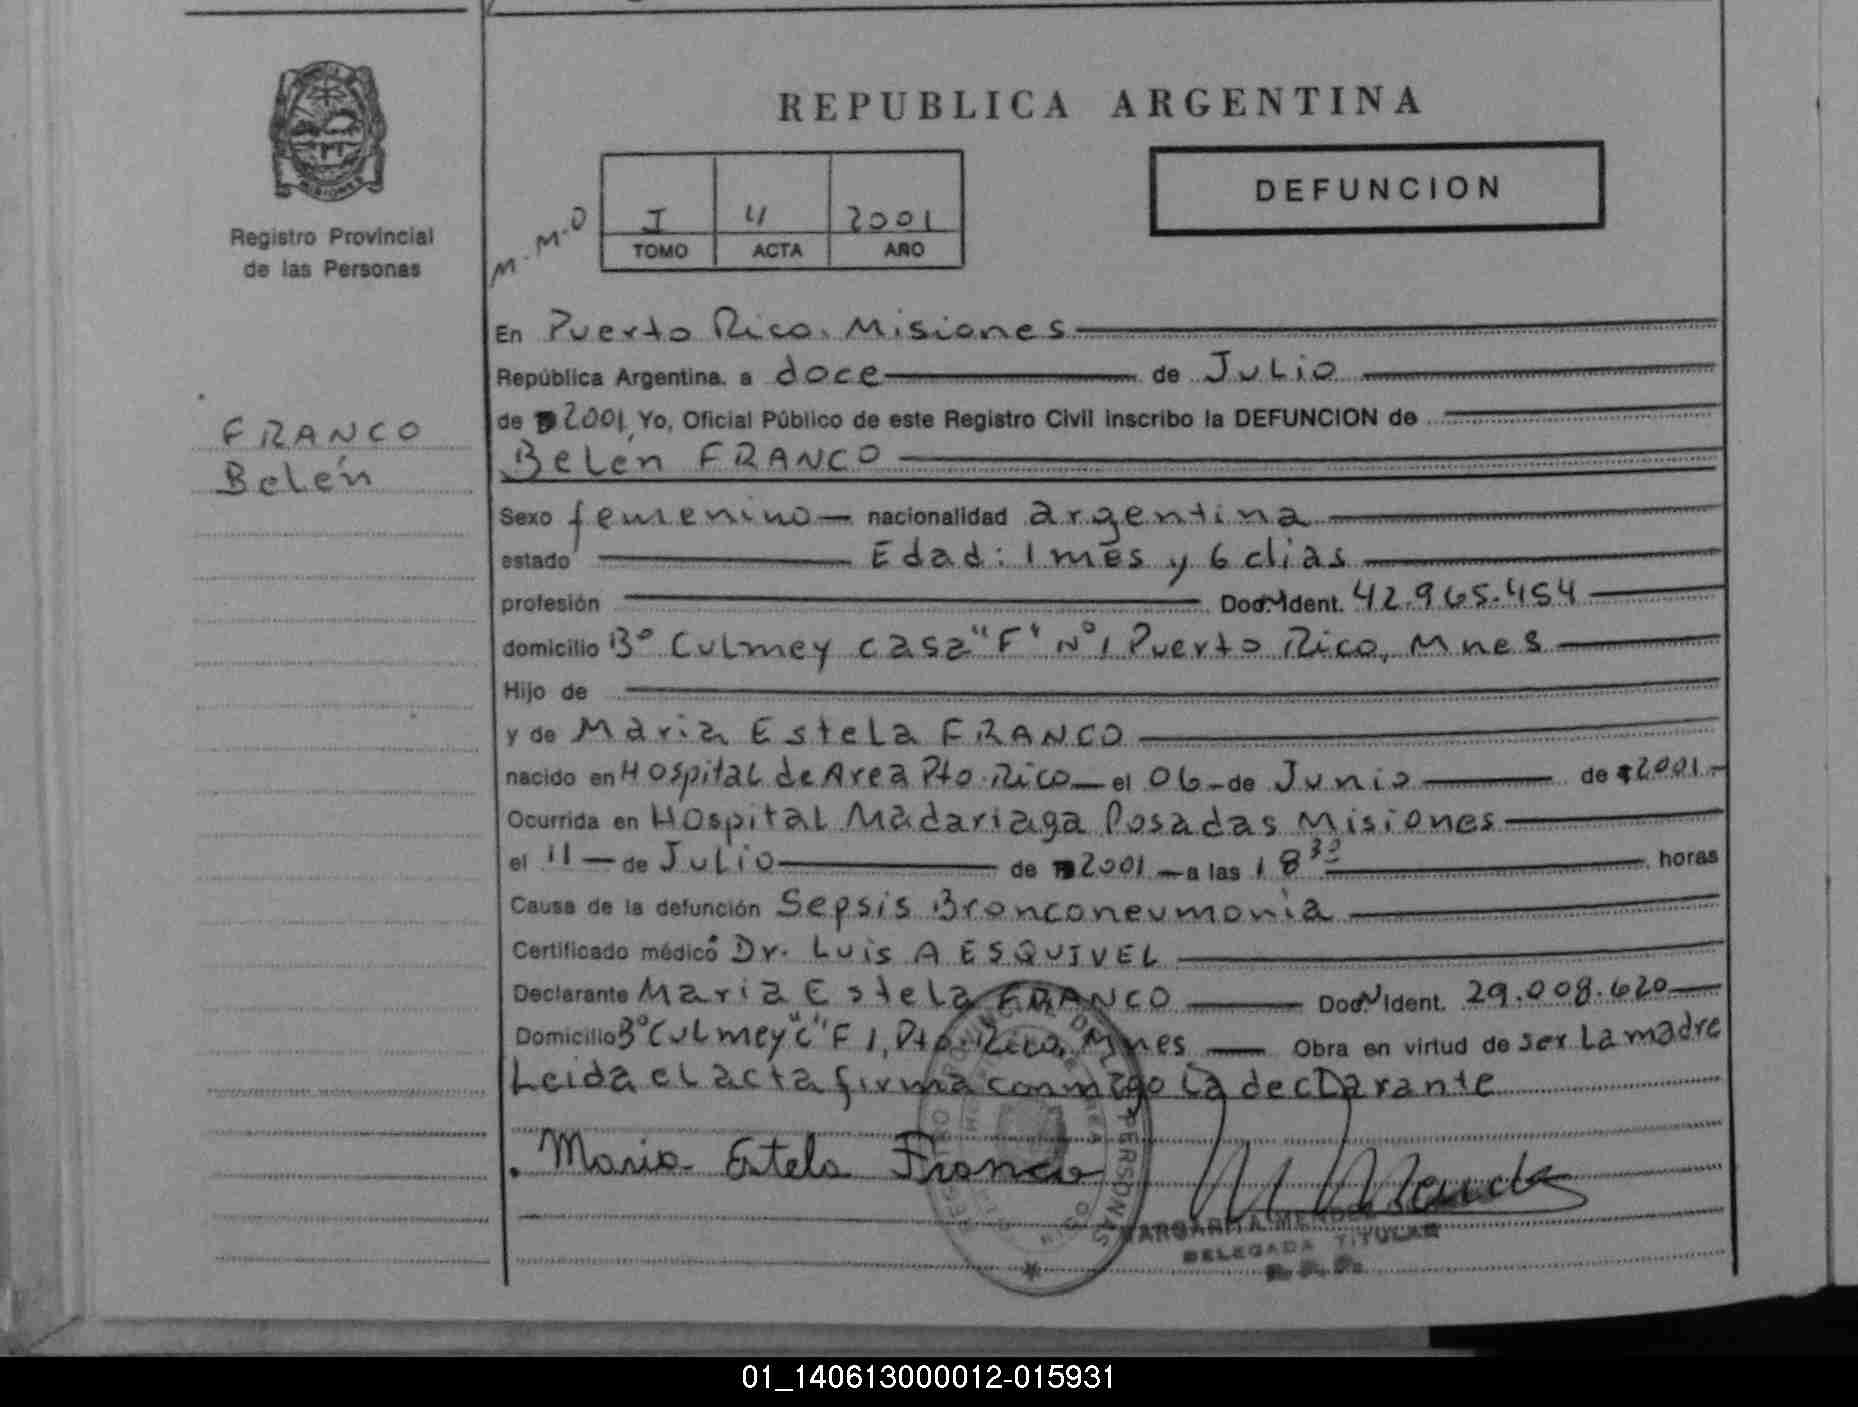 REPUBLICA ARGENTINA
DEFUNCION
MISIONES
Registro Provincial
de las Personas
M.M.O
I 4 2001
TOMO ACTA AÑO
FRANCO
Belén
En Puerto Rico. Misiones
República Argentina. a doce de Julio
de 2001 Yo, Oficial Público de este Registro Civil inscribo la DEFUNCION de
Belén FRANCO
Sexo femenino nacionalidad argentina
estado Edad: 1 mes y 6 dias
profesión Doc. Ident. 42.965.454
domicilio B° Culmey casa "F" N° 1 Puerto Rico, Mnes
Hijo de
y de Maria Estela FRANCO
nacido en Hospital de Area Pto. Rico el 06 de Junio de 2001.
Ocurrida en Hospital Madariaga Posadas Misiones
el 11 de Julio de 2001 a las 18 30 horas
Causa de la defunción Sepsis Bronconeumonia
Certificado médico Dr. Luis A ESQUIVEL
Declarante Maria Estela FRANCO Doc. Ident. 29.008.620
Domicilio B° Culmey "C" F 1, Pto. Rico, Mnes Obra en virtud de ser La madre
Leida el acta firma conmigo la decLarante
Maria Estela Franco
PERSONAS
MARGARITA MENDEZ
DELEGADA TITULAR
R.P.P.
01_140613000012-015931